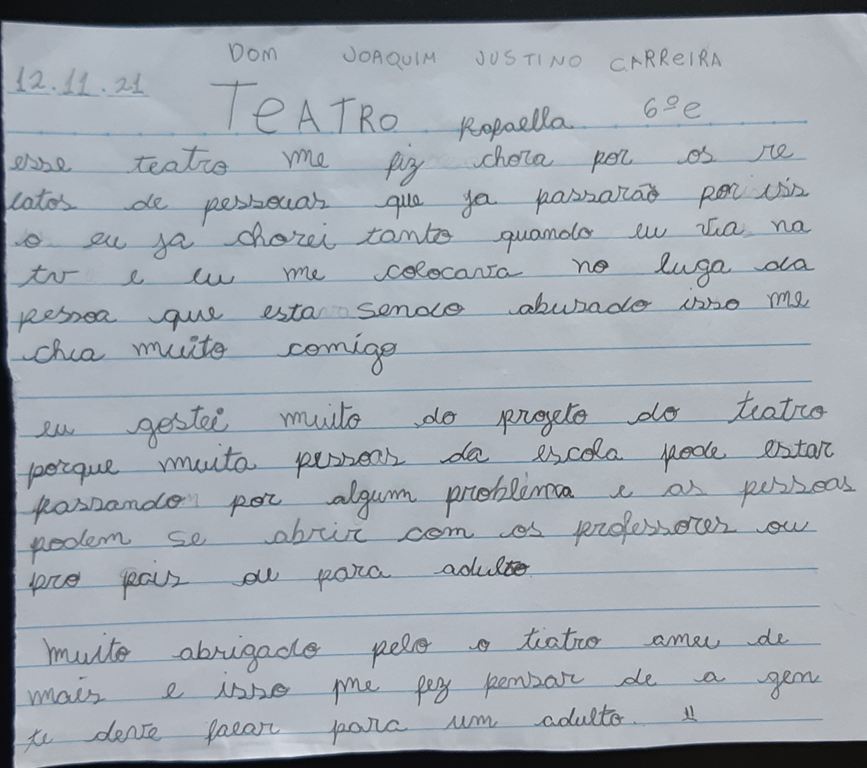 DOM JOAQUIM JUSTINO CARREIRA
12.11.21
TEATRO Rafaella 6ºe
esse teatro me fiz chora por os re
latos de pessouas que ja passarão por iss
o eu ja chorei tanto quando eu via na
tv e eu me colocava no luga da
pessoa que esta sendo abusado isso me
chia muito comigo
eu gostei muito do projeto do teatro
porque muita pessoas da escola pode estar
passando por algum problema e as pessoas
podem se abrir com os professores ou
pro pais ou para adulto
muito abrigado pelo o tiatro amei de
mais e isso me fez pensar de a gen
te deve falar para um adulto. !!